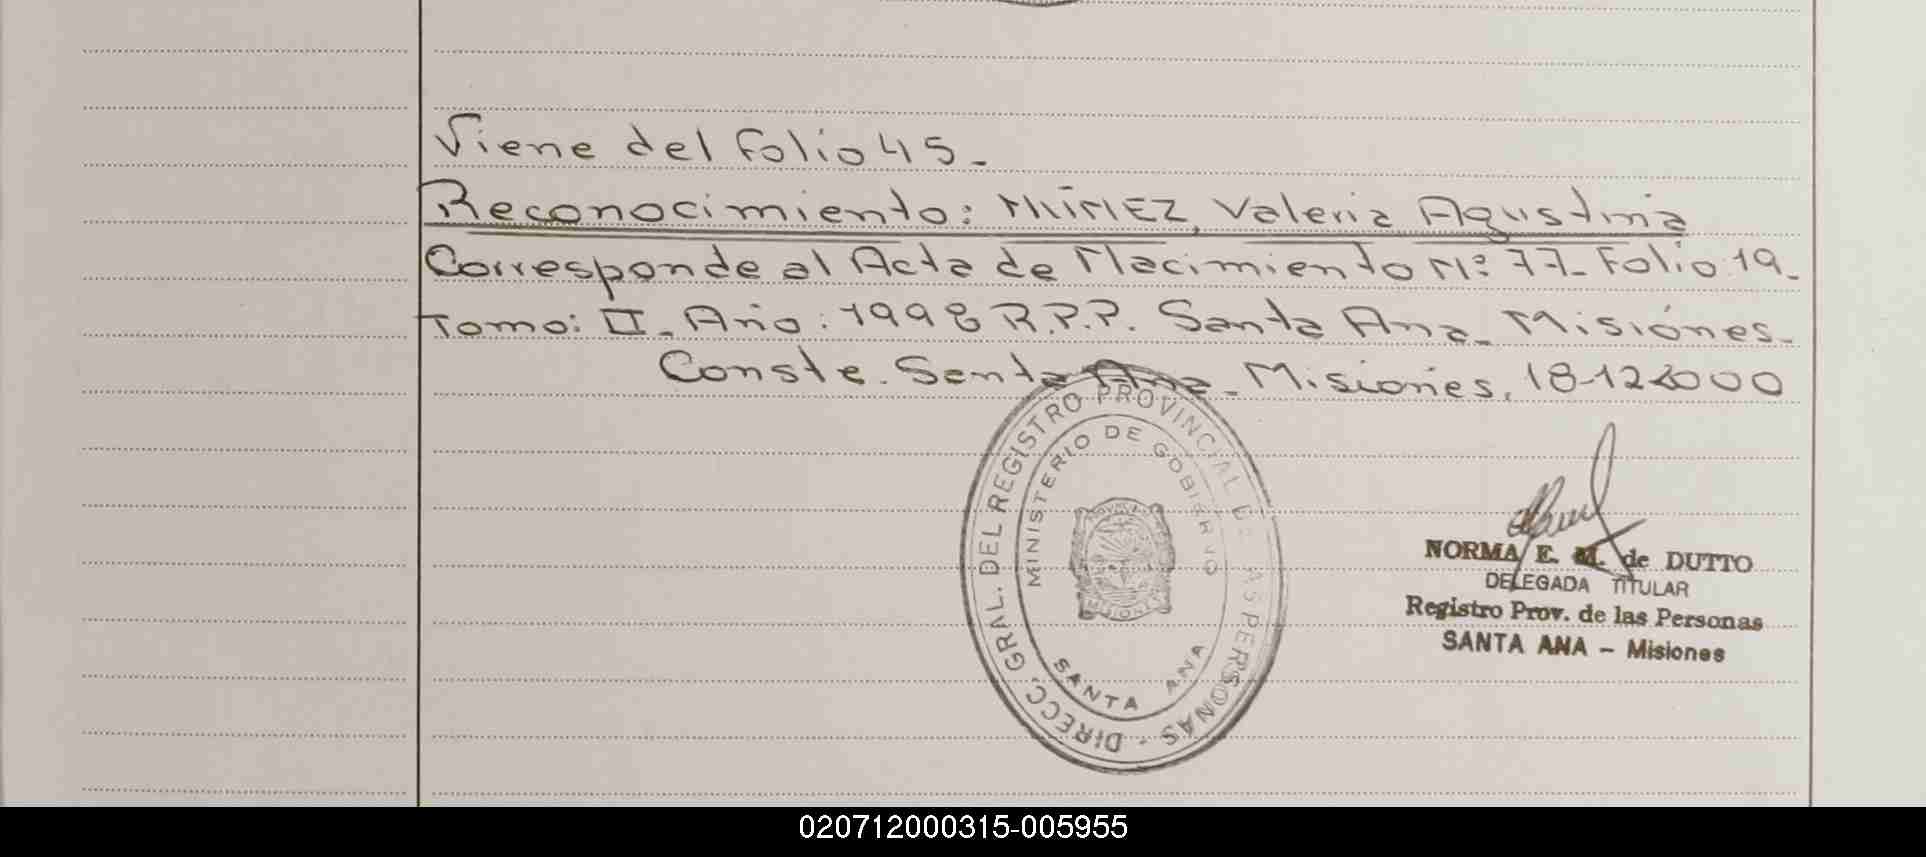 Viene del folio 45.
Reconocimiento: NUÑEZ, Valeria Agustina
Corresponde al Acta de Nacimiento Nº 77- Folio 19-
Tomo: II- Año: 1998 R.P.P. Santa Ana- Misiones-
Conste. Santa Ana- Misiones, 18-12-2000
DIRECC. GRAL. DEL REGISTRO PROVINCIAL DE LAS PERSONAS -
MINISTERIO DE GOBIERNO
MISIONES
SANTA ANA
NORMA E. M. de DUTTO
DELEGADA TITULAR
Registro Prov. de las Personas
SANTA ANA – Misiones
020712000315-005955